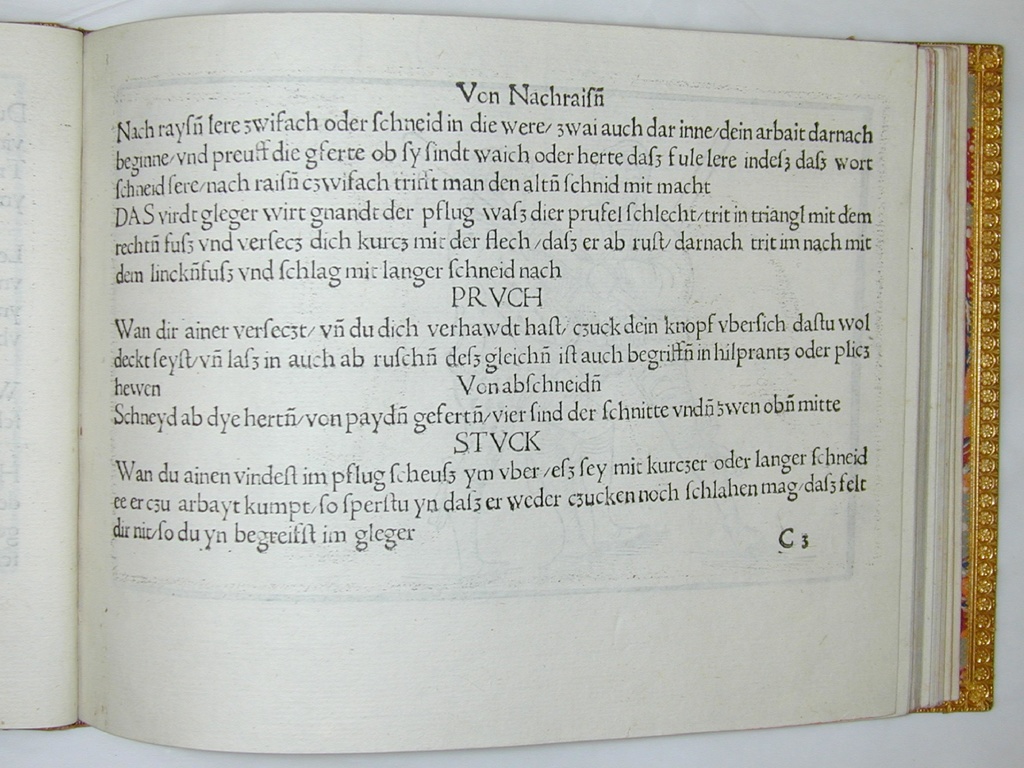 Von Nachraisn̄
Nach raysn̄ lere ʒwifach oder ſchneid in die were/ ʒwai auch dar inne/dein arbait darnach
beginne/vnd preuff die gferte ob ſy ſindt waich oder herte daſʒ fule lere indeſʒ daſʒ wort
ſchneid ſere/nach raiſn̄ cʒwifach trifft man den altn̄ ſchnid mit macht
DAS virdt gleger wirt gnandt der pflug waſʒ dier prufel ſchlecht/trit in triangl mit dem
rechtn̄ fuſʒ vnd verſecʒ dich kurcʒ mit der flech/daſʒ er ab ruſt/ darnach trit im nach mit
dem linckn̄fuſʒ vnd ſchlag mit langer ſchneid nach
PRVCH
Wan dir ainer verſecʒt/ vn̄ du dich verhawdt haſt/ cʒuck dein knopf vberſich daſtu wol
deckt ſeyſt/vn̄ laſʒ in auch ab ruſchn̄ deſʒ gleichn̄ iſt auch begriffn̄ in hilprantʒ oder plicʒ
hewen Von abſchneidn̄
Schneyd ab dye hertn̄/von paydn̄ gefertn̄/vier ſind der ſchnitte vndn̄ ʒwen obn̄ mitte
STVCK
Wan du ainen vindeſt im pflug ſcheuſʒ ym vber/eſʒ ſey mit kurcʒer oder langer ſchneid
ee er cʒu arbayt kumpt/ſo ſperſtu yn daſʒ er weder cʒucken noch ſchlahen mag/daſʒ felt
dir nit/ſo du yn begreiffſt im gleger
C 3